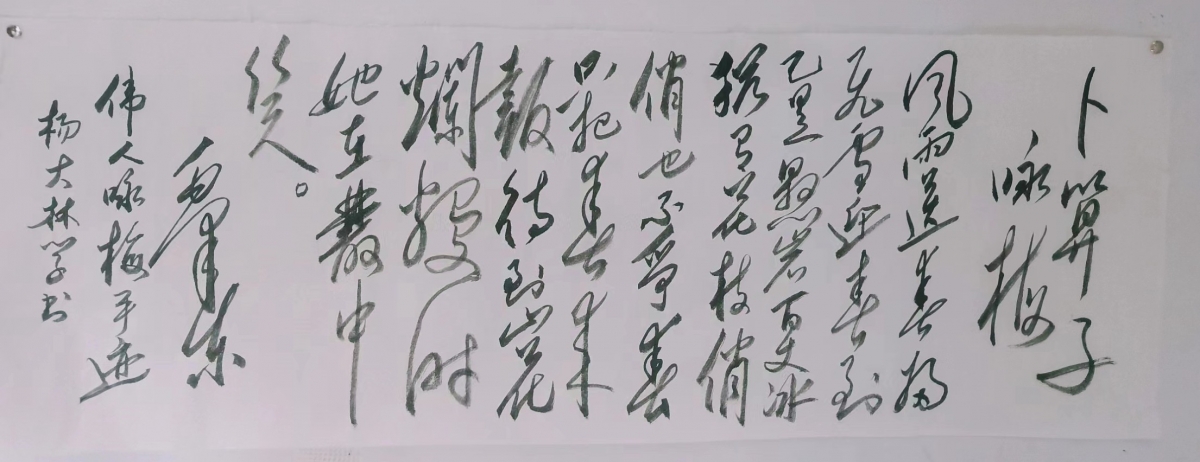 卜算子
咏梅
风雨送春归
飞雪迎春到
已是悬岩百丈冰
犹有花枝俏
俏也不争春
只把春来
报待到山花
烂熳时
她在丛中
笑。
毛泽东
伟人咏梅手迹
杨大林学书